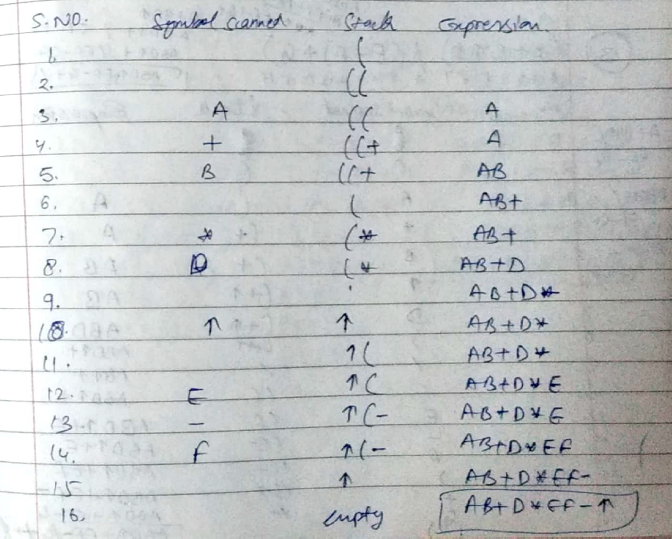 S.NO. Symbol scanned Stack Expression.
1. (
2. ((
3. A (( A
4. + ((+ A
5. B ((+ AB
6. ( AB+
7. * (* AB+
8. D (* AB+D
9. AB+D*
10. ↑ ↑ AB+D*
11. ↑( AB+D*
12. E ↑( AB+D*E
13. - ↑(- AB+D*E
14. F ↑(- AB+D*EF
15 ↑ AB+D*EF-
16. empty AB+D*EF-↑